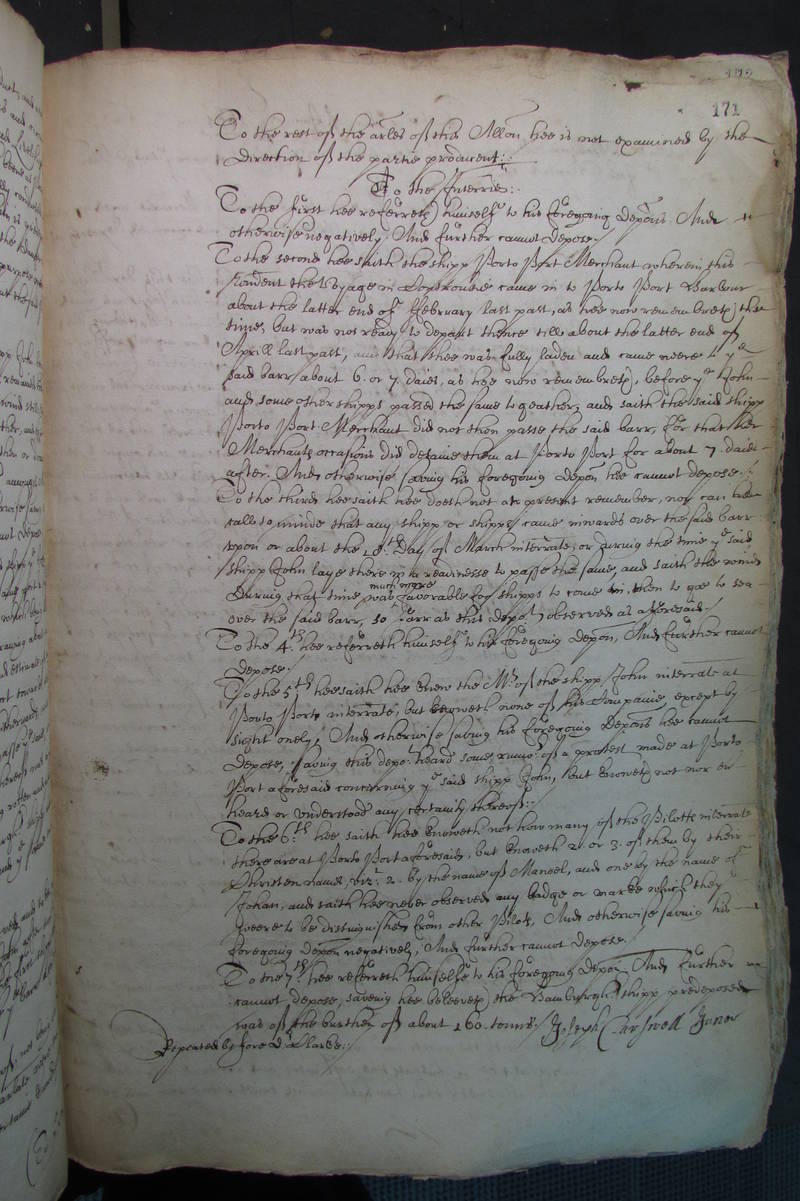 171
To the rest of the arles of the Allon hee is not examined by the
direction of the partie producent:
To the Interries:
To the first hee referreth himselfe to his foregoing deposns And
otherwise negatively, And further cannot depose./
To the second hee saith the shipp Porto Port Merchant wherein this
rondent the voyage in came in to Porto Port Barbour
about the latter end of ffebruary last past, as hee now remembreth the
time, but was not ready to depart thence till about the latter end of
Aprill last past, and that shee was fully laden and came neere to ye
said barr about 6 or 7 daies, as hee now remembreth, before ye John
and some other shipps passed the same togeather, and saith the said shipp
Porto Port Merchant did not then passe the said barr, for that her
Merchants occasions did detaine them at Porto Port for about 7 daies
after. And otherwise saving his foregoing deposn hee cannot depose./
To the third hee saith hee doeth not at present remember, nor can hee
call to minde that any shipp or shipps came inwards over the said barr
upon or about the 10th day of March interrate, or during the time ye said
shipp John laye there in a readinesse to passe the same, and saith the winde
during that time was much more favorable for shipps to come in, then to goe to sea
over the said barr, so farr as this depot observed as aforesaid./
To the 4th hee referreth himselfe to his foregoing deposn, And further cannot
depose./
To the 5th hee saith hee knew the Mr of the shipp John interrate at
Porto Port interrate, but knoweth none of his Companie except by
sight onely, And otherwise saving his foregoing deposns hee cannot
depose, saving this depot heard some rumor of a protest made at Porto
Port aforesaid concerning ye said shipp John, but knoweth not nor ever
heard or understood any certainty thereof:/
To the 6th hee saith hee knoweth not how many of the Pilotts interrate
there are at Porto Port aforesaid, but knoweth 2 or 3 of them by their
Christen names, vizt 2 by the name of Manoel, and one by the name of
Johan, and saith hee never observed any badge or marke which they
weere to be distinguished from other Pilots, And otherwise saving his
foregoing deposn negatively, And further cannot depose./
To the 7th hee referreth himselfe to his foregoing deposn And further
cannot depose, saveing hee beleeveth the Hamburgh shipp predeposed
was of the burthen of about 160 tonns./ Joseph Carswell Junor
Repeated before Dr Clarke:/